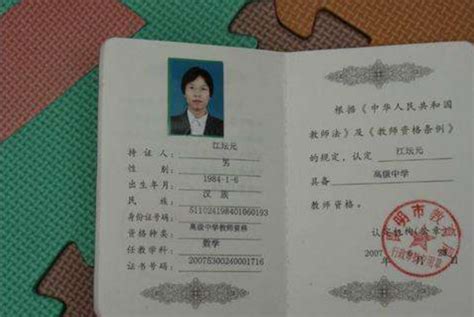 持证人: 江坛元
性别: 男
出生年月: 1984-1-6
民族: 汉族
身份证号码: 511024198401060193
资格种类: 高级中学教师资格
任教学科: 数学
证书号码: 20075300240001716
根据《中华人民共和国
教师法》及《教师资格条例》
的规定，认定 江坛元
具备 高级中学
教师资格。
认定机构(公章)
2007
明市教